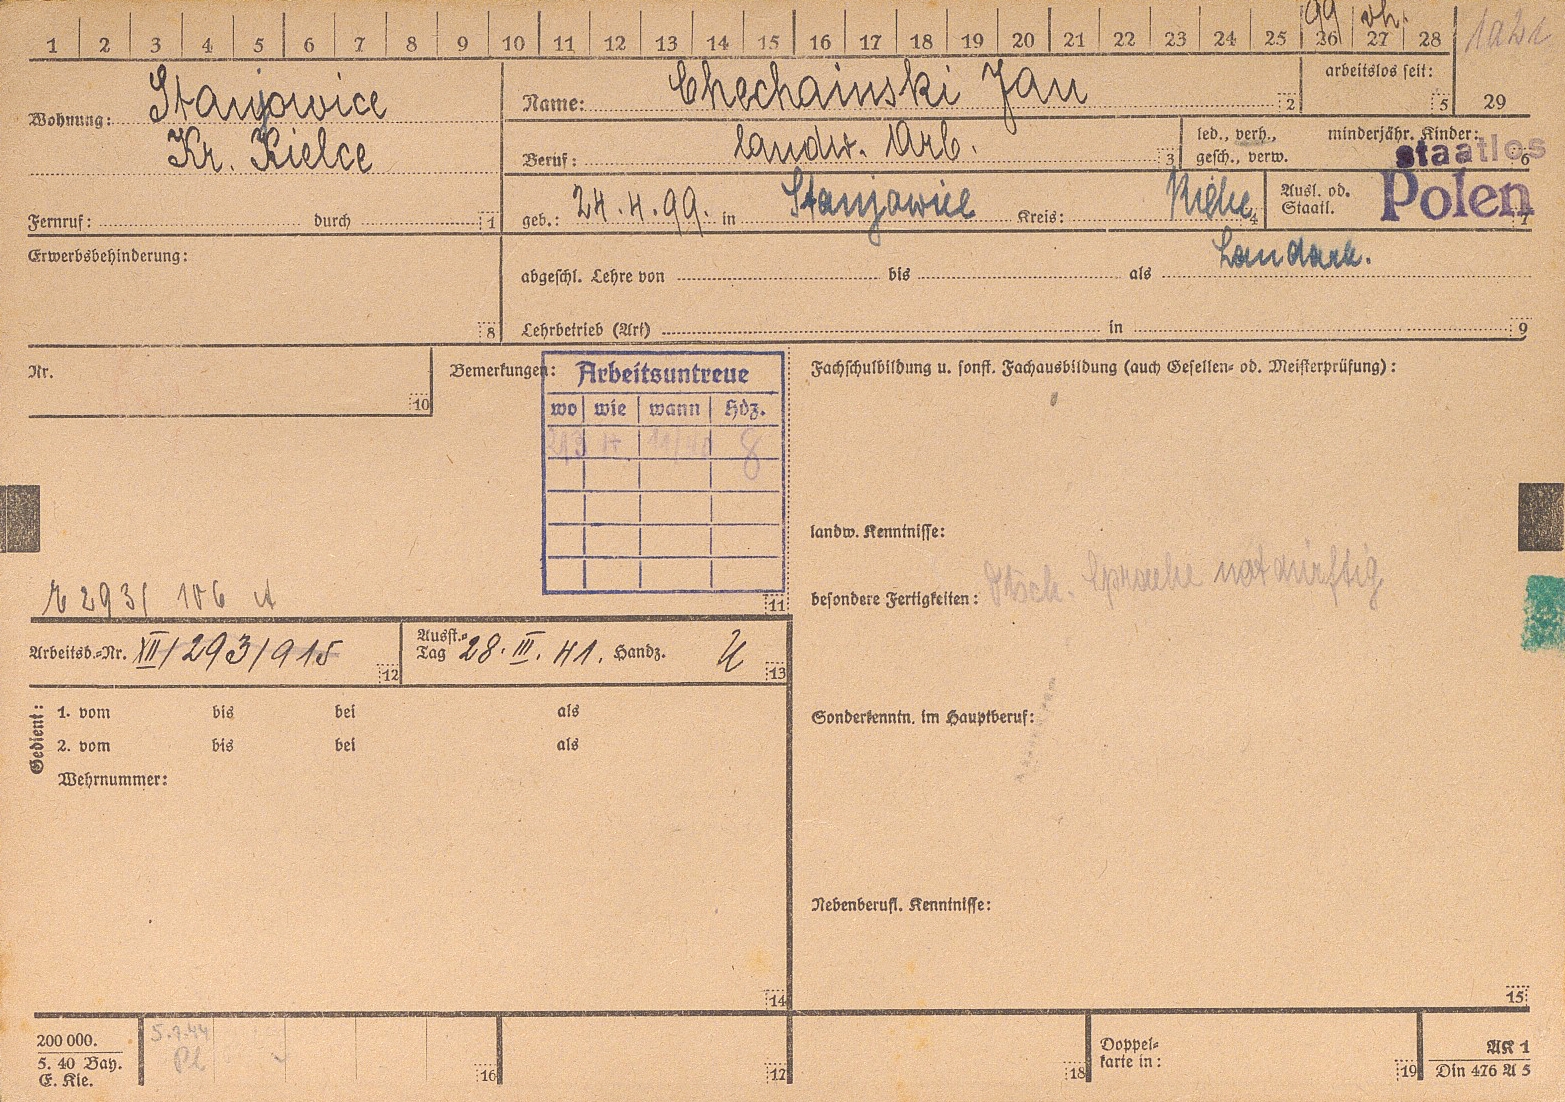 1 2 3 4 5 6 7 8 9 10 11 12 13 14 15 16 17 18 19 20 21 22 23 24 25 26 27 28
99 vh.
Wohnung: Stanjowice
Kr. Kielce
Fernruf: durch 1
Name: Chechainski Jan 2
arbeitslos seit: 5
29
Beruf: landw. Arb. 3
led., verh., gesch., verw.
minderjähr. Kinder: 6
staatlos
geb.: 24.4.99. in Stanjawice Kreis: Kielce 4
Ausl. od. Staatl. Polen 7
Erwerbsbehinderung: 8
abgeschl. Lehre von bis als Landarb.
Lehrbetrieb (Art) in 9
Nr. 10
Bemerkungen:
Arbeitsuntreue
wo wie wann Hdz.
213 11/40
11
Fachschulbildung u. sonst. Fachausbildung (auch Gesellen- od. Meisterprüfung):
landw. Kenntnisse:
besondere Fertigkeiten: Dtsch. Sprache notdürftig
293/ 106 A
Arbeitsb.-Nr. XII/293/915 12
Ausst.-Tag 28.III.41. Handz. 13
Gedient:
1. vom bis bei als
2. vom bis bei als
Wehrnummer:
14
Sonderkenntn. im Hauptberuf:
Nebenberufl. Kenntnisse:
15
200 000.
5. 40 Bay.
E. Kle.
5.7.44
Pl
16
17
18
Doppel-
karte in: 19
AK 1
Din 476 A 5